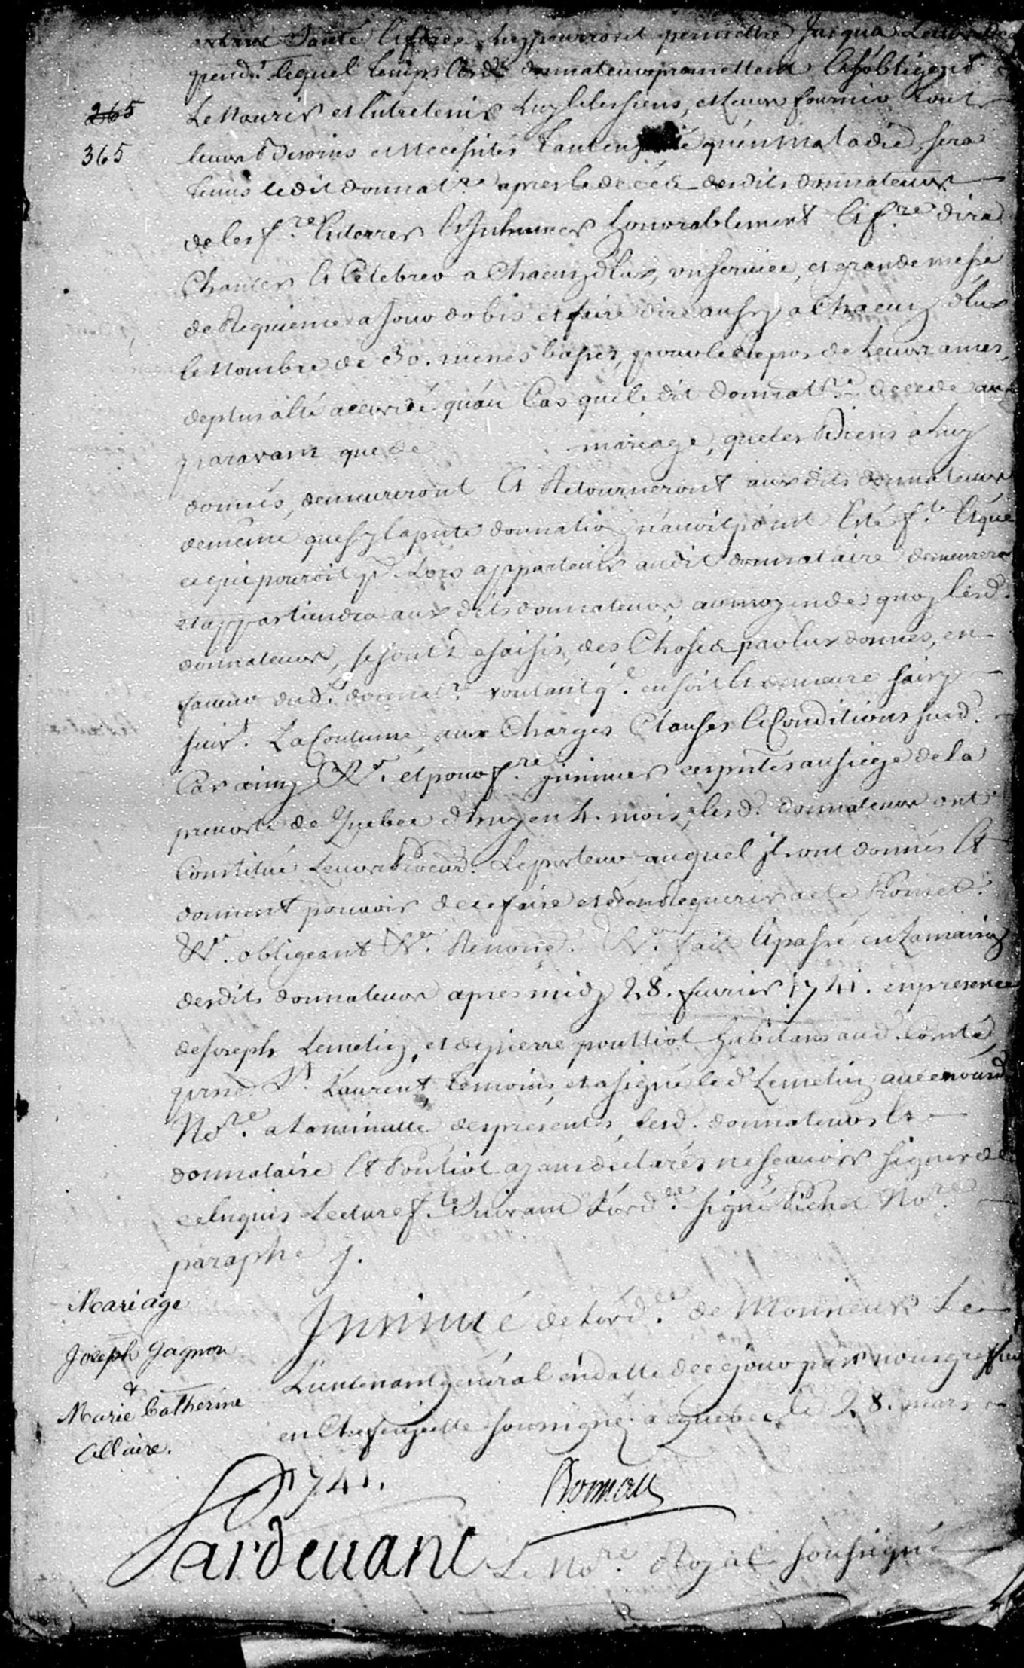 autant Santé & forces luy pourront permettre Jusqua
pend.t lequel temps les d. donnateurs promettent & sobligent
265
Le Nourir et Entretenir luy & les siens, et leurs fournir tout
365
leurs besoins et Necessités tant en Santé qu'en Maladie, sera
tenus le dit donnat.re apres le deces desdits donnateurs
de les f.re Enterrer & Inhumer honnorablement & f.re dire
Chanter & Celebrer a Chacun d'Eux, un service, et grande messe
de Requieme a Jour dobis et faire dire aussy a Chacun d'Eux
le Nombre de 30. messes basses, pour le Repos de Leurs ames,
de plus a Eté accordé qu'au Cas que le dit donnat.re decede au
paravant que de mariage, que les Biens a luy
donnés, demeureront & Retourneront aux dits donnateurs
de même que sy la p.nte donnation n'avoit point Eté f.te & que
ce qui pouroit p.r Lors appartenir audit donnataire demeurera
et appartiendra aux dits donnateurs au moyen de quoy lesd.
donnateurs, se sont Desaisis des Choses par Eux donnés, en
faveur dud. donnat.re voulant q. en soit & demeure saisy
suiv.t La Coutume, aux Charges Clauses & Conditions susd.
Car ainsy &.a et pour f.re insinuer ces p.ntes au siege de la
prevosté de Quebec d'huy en 4. mois, les d. donnateurs ont
Constitué Leur Procur.r Le porteur auquel ils ont donnés &
donnent pouvoir de ce faire et d'en Requerir acte Promet.t
&.a obligeant &.a Renonç.t &.a fait & passé en La maison
desdits donnateurs apres midy 28. fevrier 1741. en presence
de Joseph Lemelin, et de pierre pouliot habitans aud. Comté
prsse S.t Laurent, temoins, et a signé le d. Lemelin avec nousd.
No.re a la minutte des presentes, lesd. donnateurs &
donnataire & Pouliot ayans declarés ne scavoir signer de
ce Enquis Lecture f.te suivant L'ord.ce signé Pichet No.re
paraphe J.
Mariage
Joseph Gagnon
&
Marie Catherine
Allaire.
Insinué de L'ord.ce de Monsieur Le
Lieutenant general en datte de ce jour par nous greffier
en Chef en icelle soussigné. a quebec, le 28. mars
1741.
Boisseau
Pardevant Le No.re Royal soussigné